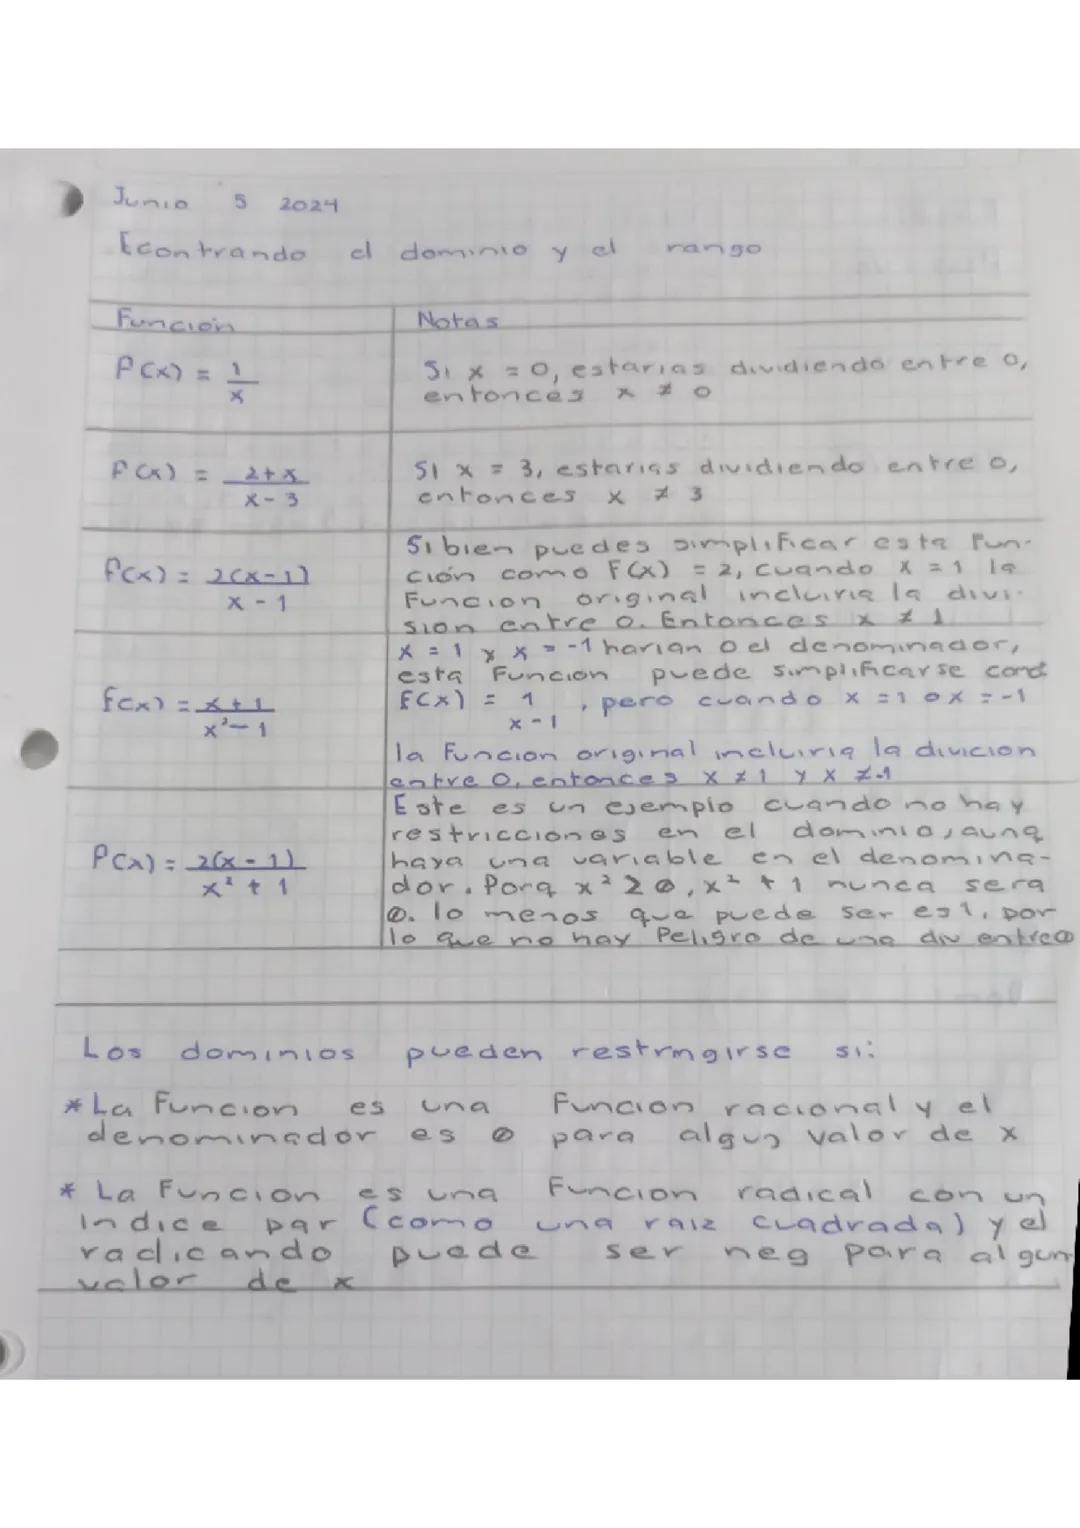 Junio 5 2024
Econtrando el dominio y el rango
Función Notas
f(x) = 1/x
Si x = 0, estarias dividiendo entre 0,
entonces x ≠ 0
f(x) = 2+x/x-3
Si x = 3, estarias dividiendo entre 0,
entonces x ≠ 3
f(x) = 2(x-1)/x-1
Si bien puedes simplificar esta fun-
ción como F(x) = 2, cuando x = 1 la
Funcion original incluiria la divi-
sion entre 0. Entonces x ≠ 1
f(x) = x+1/x²-1
x = 1 y x = -1 harian 0 el denominador,
esta Funcion puede simplificarse como
F(x) = 1/x-1, pero cuando x = 1 o x = -1
la Funcion original incluiria la divicion
entre 0, entonces x ≠ 1 y x ≠ -1
f(x) = 2(x-1)/x²+1
Este es un ejemplo cuando no hay
restricciones en el dominio, aunq
haya una variable en el denomina-
dor. Porq x² ≥ 0, x² + 1 nunca sera
0. lo menos que puede ser es 1, por
lo que no hay Peligro de una div entre 0
Los dominios pueden restringirse si:
* La Funcion es una Funcion racional y el
denominador es 0 para algun valor de x
* La Funcion es una Funcion radical con un
indice par (como una raiz cuadrada) y el
radicando puede ser neg para algun
valor de x